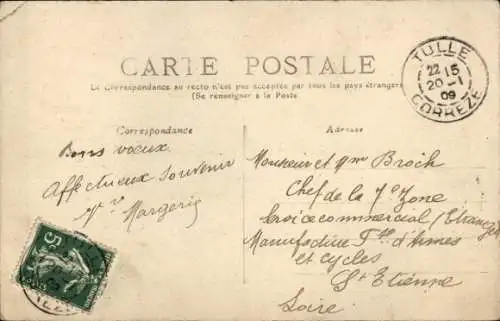 CARTE POSTALE
La Correspondance au recto n'est pas acceptée par tous les pays étrangers
(Se renseigner à la Poste
TULLE
22 15
20 -1
09
CORREZE
Correspondance
Bons voeux
Affectueux souvenir
Margerie
5c
Adresse
Monsieur et Mme Broch
Chef de la 7e Zone
Service commercial (Etranger
Manufacture Fse d'Armes
et cycles
St Etienne
Loire